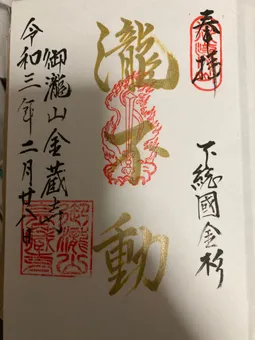 奉拝
下総國金杉
瀧不動
御瀧山金蔵寺
令和三年二月廿八日